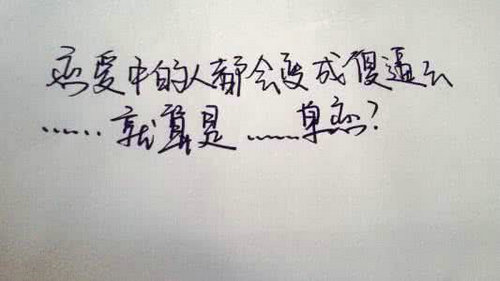 恋爱中的人都会变成傻逼么
......就算是......单恋?